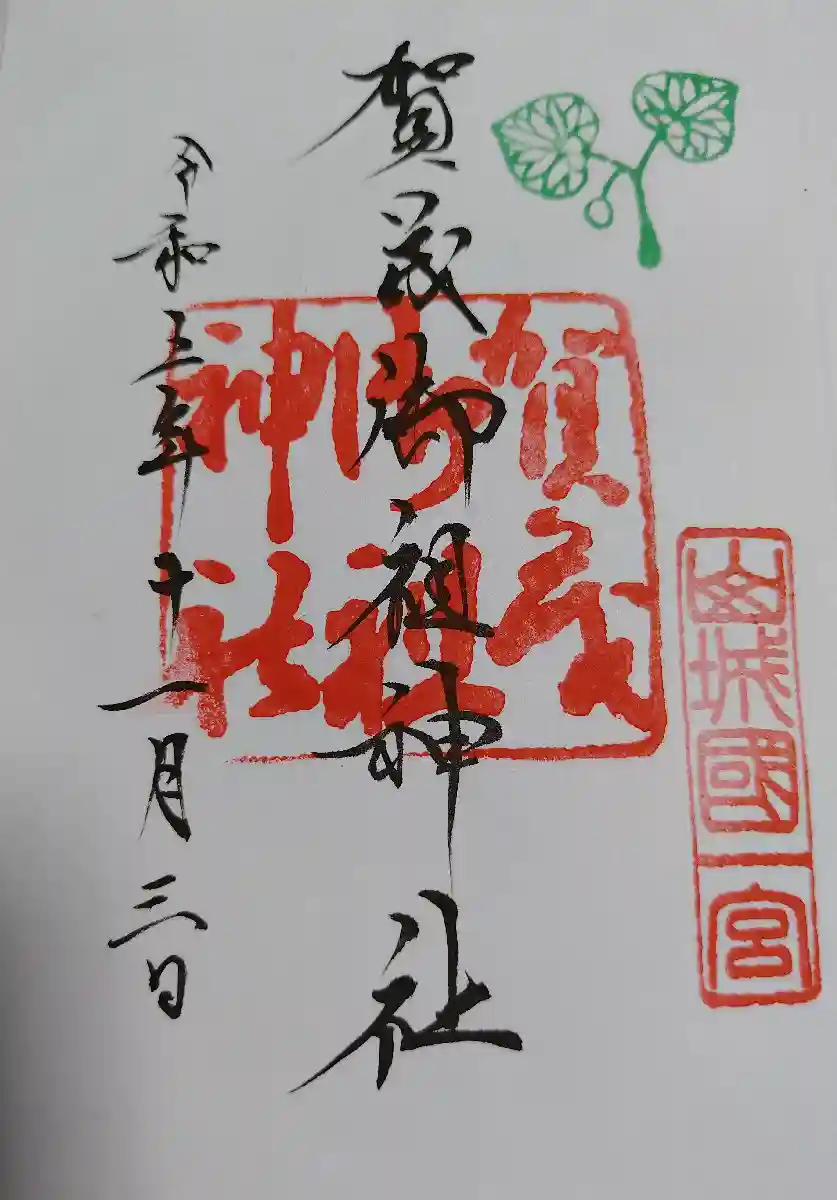 山城國一宮
賀茂
御祖
神社
賀茂御祖神社
令和五年十一月三日